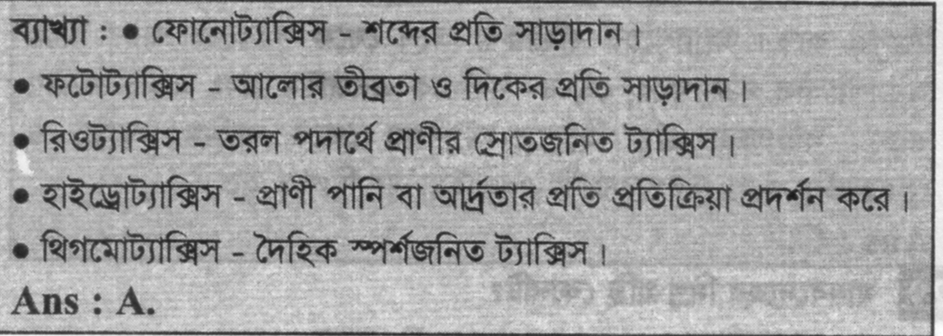 ব্যাখ্যা : • ফোনোট্যাক্সিস - শব্দের প্রতি সাড়াদান।
• ফটোট্যাক্সিস - আলোর তীব্রতা ও দিকের প্রতি সাড়াদান।
• রিওট্যাক্সিস - তরল পদার্থে প্রাণীর স্রোতজনিত ট্যাক্সিস।
• হাইড্রোট্যাক্সিস - প্রাণী পানি বা আর্দ্রতার প্রতি প্রতিক্রিয়া প্রদর্শন করে।
• থিগমোট্যাক্সিস - দৈহিক স্পর্শজনিত ট্যাক্সিস।
Ans : A.